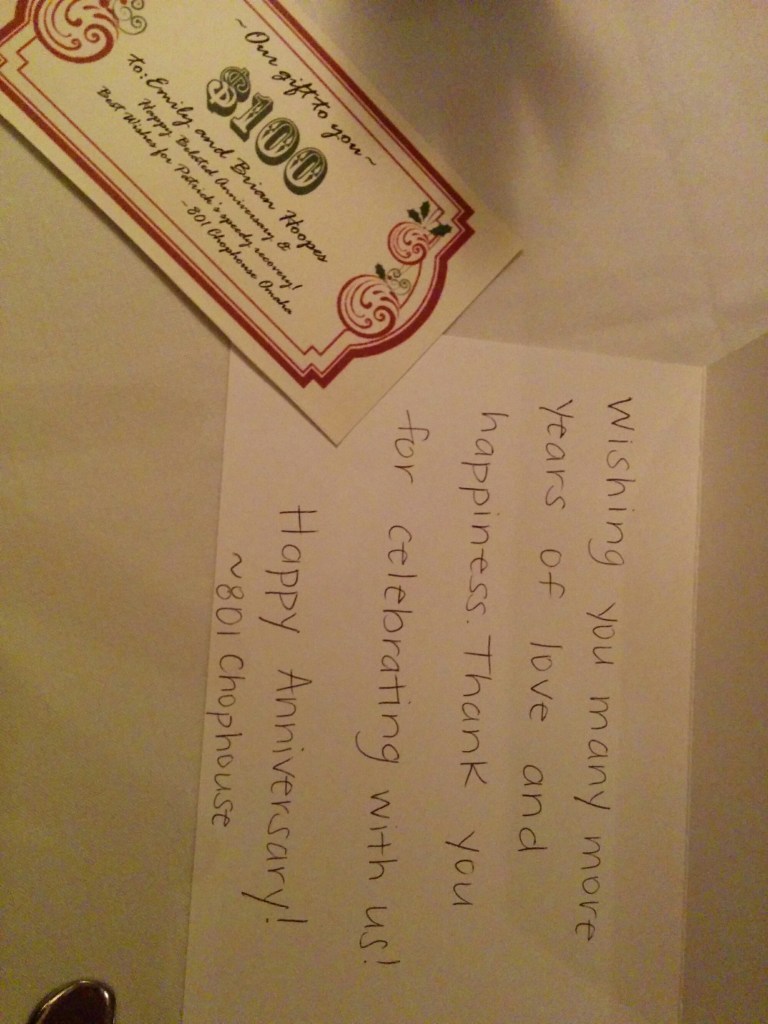 ~Our gift to you~
$100
to: Emily and Brian Hoopes
Happy Belated Anniversary &
Best Wishes for Patrick's speedy recovery!
~801 Chophouse Omaha
Wishing you many more
years of love and
happiness. Thank you
for celebrating with us!
Happy Anniversary!
~801 Chophouse